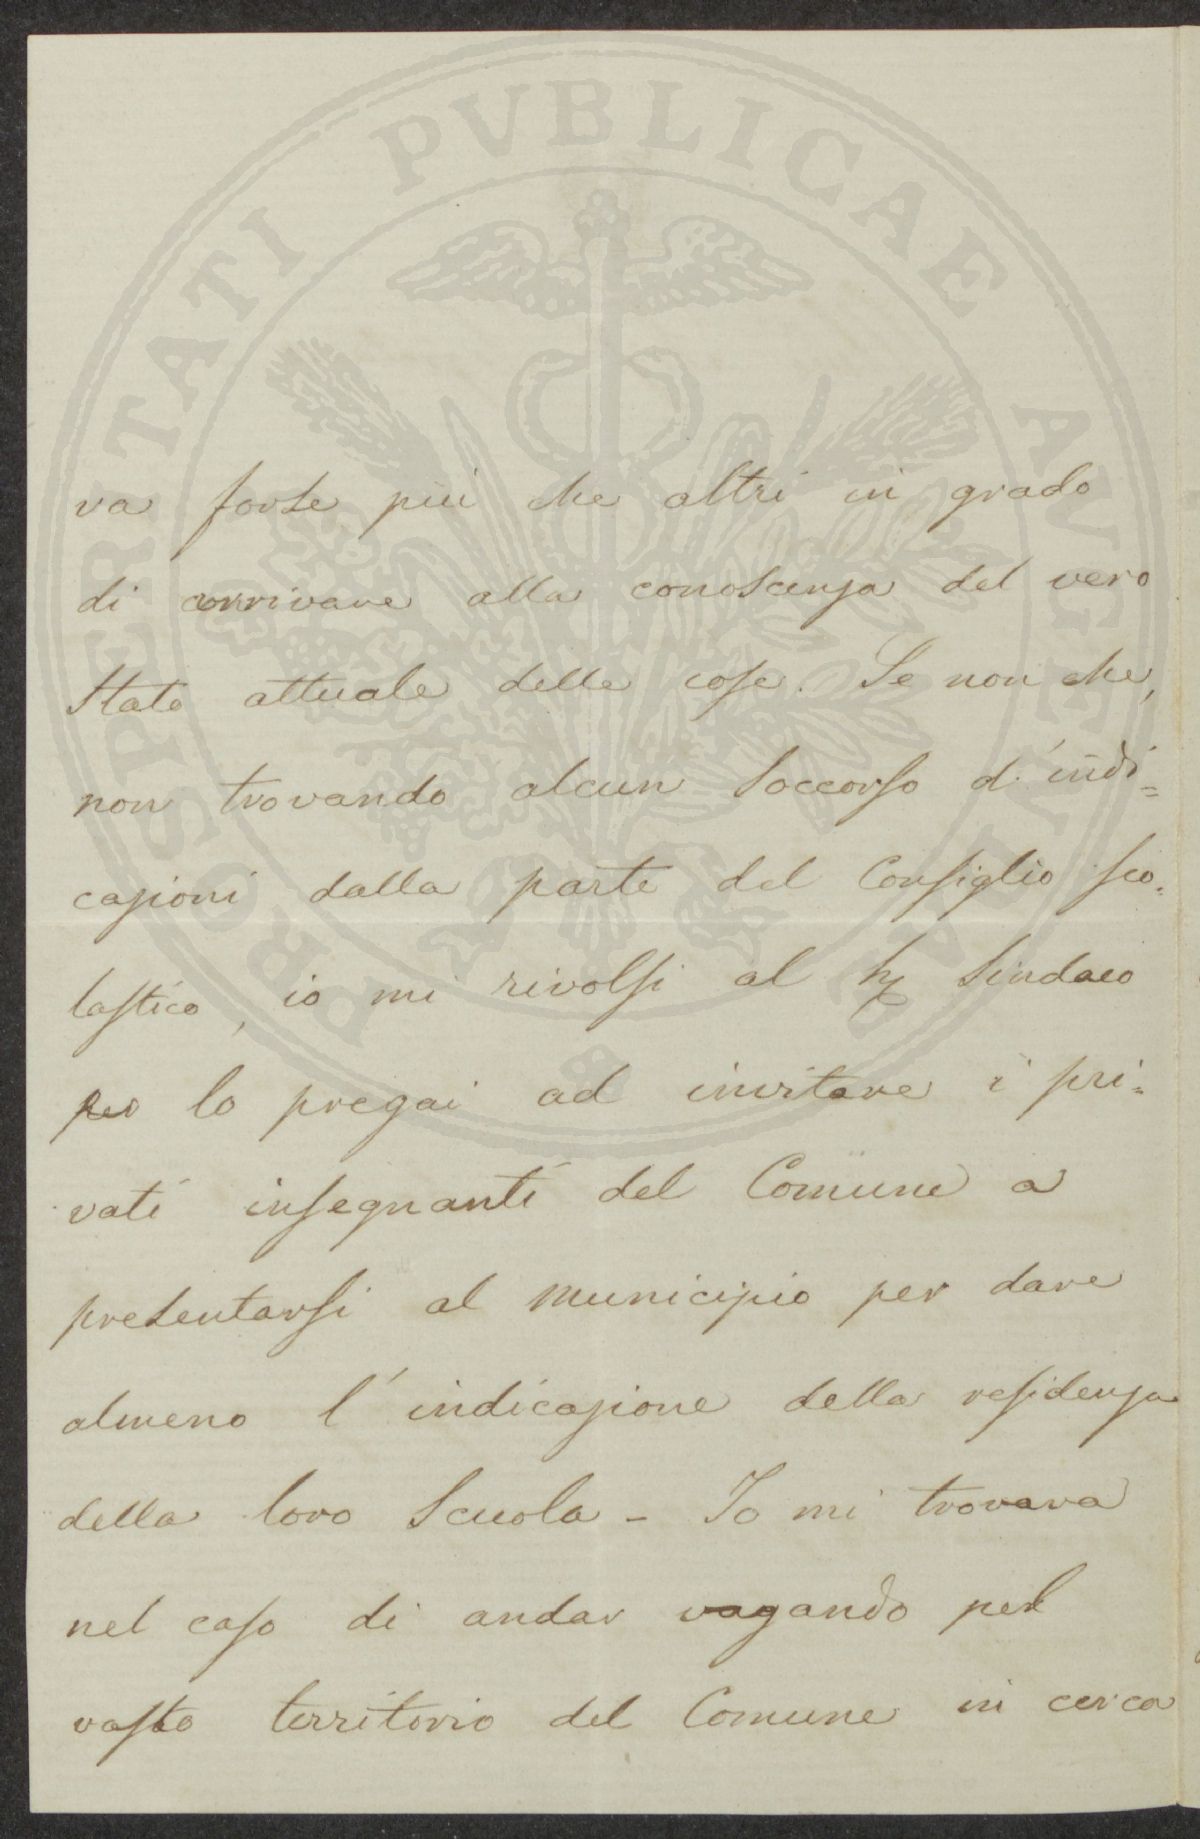 PROSPERITATI PVBLICAE AVGENDAE
va forse più che altri in grado
di arrivare alla conoscenza del vero
stato attuale delle cose. Se non che,
non trovando alcun soccorso d'indi=
cazioni dalla parte del Consiglio sco=
lastico, io mi rivolsi al Sindaco
lo pregai ad invitare i pri=
vati insegnanti del Comune a
presentarsi al municipio per dare
almeno l'indicazione della residenza
della loro scuola - Io mi trovava
nel caso di andar vagando pel
vasto territorio del Comune in cerca